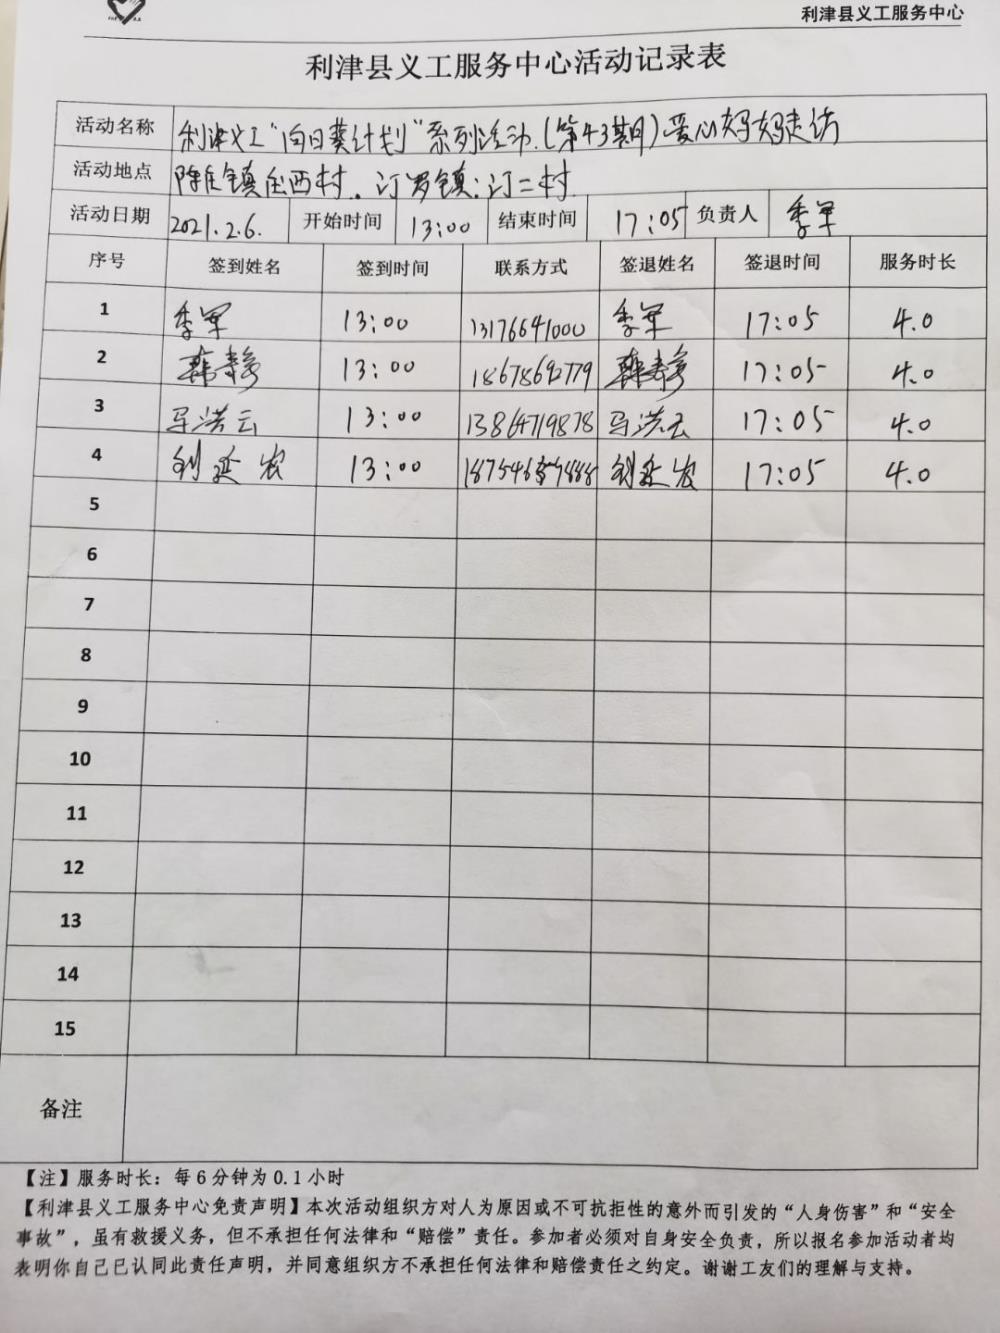 利津县义工服务中心
利津县义工服务中心活动记录表
活动名称 利津义工"向日葵计划"系列活动.(第43期)爱心妈妈走访
活动地点 陈庄镇庄西村.. 汀罗镇:汀二村
活动日期 2021.2.6. 开始时间 13:00 结束时间 17:05 负责人 季军
序号 签到姓名 签到时间 联系方式 签退姓名 签退时间 服务时长
1 季军 13:00 13176641000 季军 17:05 4.0
2 韩静 13:00 18678692779 韩静 17:05 4.0
3 马洪云 13:00 13864719878 马洪云 17:05 4.0
4 刘延农 13:00 刘延农 17:05 4.0
5
6
7
8
9
10
11
12
13
14
15
备注
【注】服务时长：每6分钟为0.1小时
【利津县义工服务中心免责声明】本次活动组织方对人为原因或不可抗拒性的意外而引发的“人身伤害”和“安全
事故”，虽有救援义务，但不承担任何法律和“赔偿”责任。参加者必须对自身安全负责，所以报名参加活动者均
表明你自己已认同此责任声明，并同意组织方不承担任何法律和赔偿责任之约定。谢谢工友们的理解与支持。